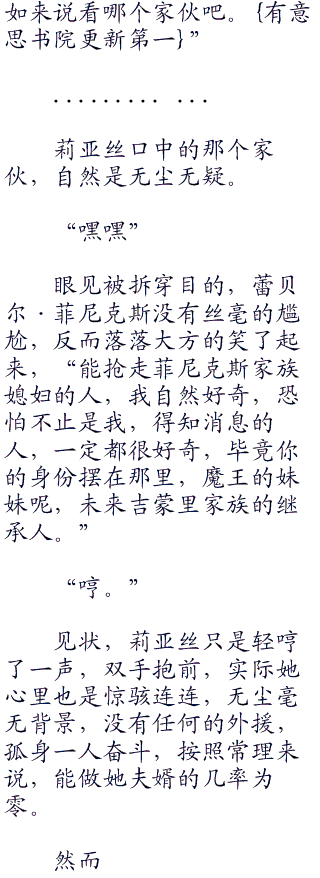 如来说看哪个家伙吧。{有意
思书院更新第一}”
......... ...
莉亚丝口中的那个家
伙，自然是无尘无疑。
“嘿嘿”
眼见被拆穿目的，蕾贝
尔·菲尼克斯没有丝毫的尴
尬，反而落落大方的笑了起
来，“能抢走菲尼克斯家族
媳妇的人，我自然好奇，恐
怕不止是我，得知消息的
人，一定都很好奇，毕竟你
的身份摆在那里，魔王的妹
妹呢，未来吉蒙里家族的继
承人。”
“哼。”
见状，莉亚丝只是轻哼
了一声，双手抱前，实际她
心里也是惊骇连连，无尘毫
无背景，没有任何的外援，
孤身一人奋斗，按照常理来
说，能做她夫婿的几率为
零。
然而